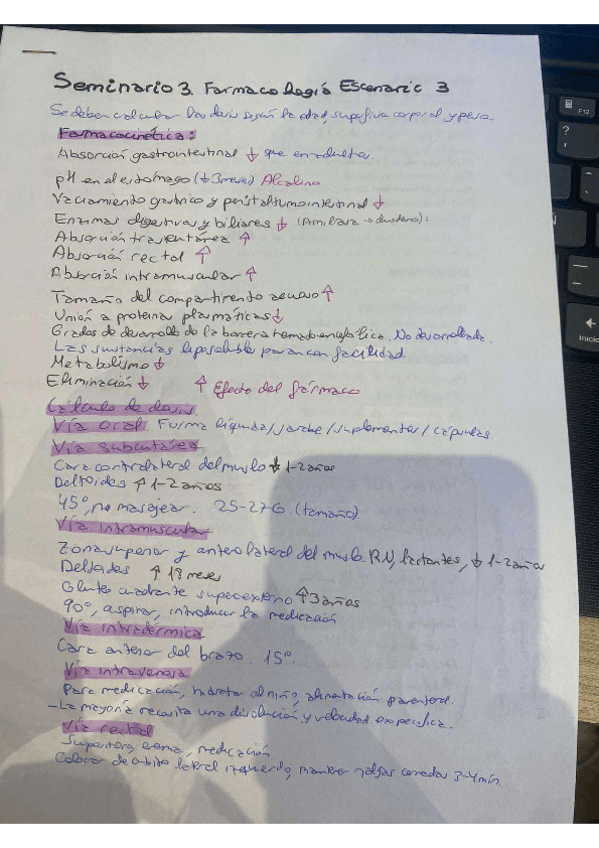 Seminario 3. Farmacología Escenario 3
Se deben calcular las dosis según la edad, superficie corporal y peso.
Farmacocinética:
Absorción gastrointestinal ↓ que en adultos.
pH en el estómago (↓3 meses) Alcalino
Vaciamiento gástrico y peristaltismo intestinal ↓
Enzimas digestivas y biliares ↓ (Amilasa → duodeno).
Absorción trascutánea ↑
Absorción rectal ↑
Absorción intramuscular ↑
Tamaño del compartimento acuoso ↑
Unión a proteínas plasmáticas ↓
Grados de desarrollo de la barrera hematoencefálica. No desarrollada.
Las sustancias liposolubles pasan con facilidad.
Metabolismo ↓
Eliminación ↓ ↑ Efecto del fármaco
Cálculo de dosis
Vía oral. Forma líquida/jarabe/suplementos/cápsulas.
Vía subcutánea
Cara contralateral del muslo ↓ 1-2 años
Deltoides ↑ 1-2 años
45º, no masajear. 25-27G. (tamaño)
Vía intramuscular
Zona superior y anterolateral del muslo RN, lactantes, ↓ 1-2 años
Deltoides ↑ 18 meses
Gluteo cuadrante superoexterno ↑ 3 años
90º, aspirar, introducir la medicación
Vía intradérmica
Cara anterior del brazo. 15º
Vía intravenosa
Para medicación, hidratar al niño, alimentación parenteral.
- La mayoría necesita una disolución y velocidad específica.
Vía rectal
Supositorio, enema, medicación
Colocar decúbito lateral izquierdo, mantener nalgas cerradas 3-4 min.
F12
?
Inicio